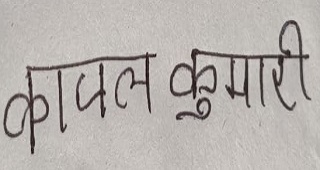 कापल कुमारी